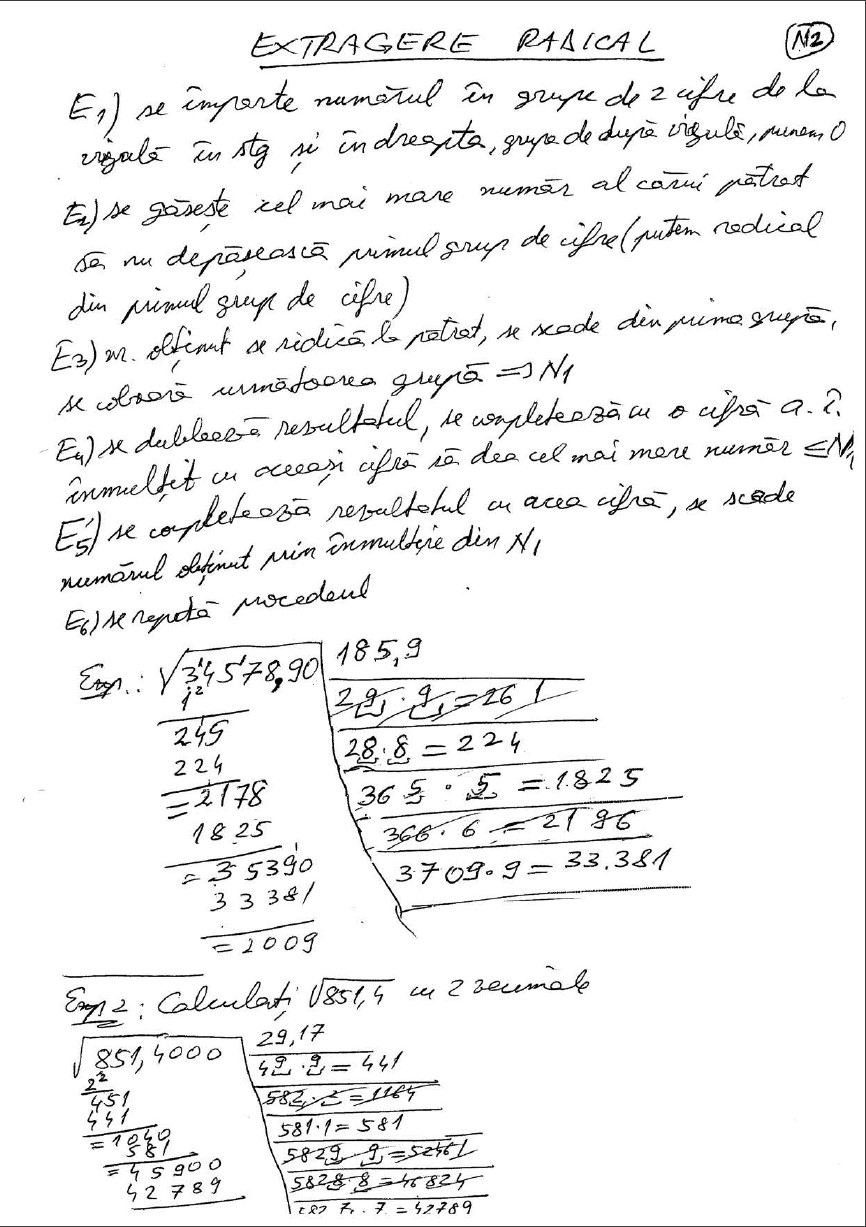 EXTRAGERE RADICAL
N2
E1) se împarte numărul în grupe de 2 cifre de la
virgulă în stg și în dreapta, grupa de după virgulă, punem 0
E2) se găsește cel mai mare număr al cărui pătrat
să nu depășească primul grup de cifre (putem radical
din primul grup de cifre)
E3) nr. obținut se ridică la pătrat, se scade din prima grupă,
se coboară următoarea grupă => N1
E4) se dublează rezultatul, se completează cu o cifră a. î.
înmulțit cu aceeași cifră să dea cel mai mare număr ≤ N1
E5) se completează rezultatul cu acea cifră, se scade
numărul obținut prin înmulțire din N1
E6) se repetă procedeul
Exp.: √3'45'78,90 185,9
1²
29 · 9 = 261
245
28 · 8 = 224
224
= 2178
365 · 5 = 1825
1825
366 · 6 = 2196
= 35390
3709 · 9 = 33.381
33381
= 2009
Exp 2: Calculați √851,4 cu 2 zecimale
√851,4000 29,17
2²
49 · 9 = 441
451
582 · 2 = 1164
441
581 · 1 = 581
= 1040
581
5829 · 9 = 52461
= 45900
5828 · 8 = 46824
42789
5827 · 7 = 42789